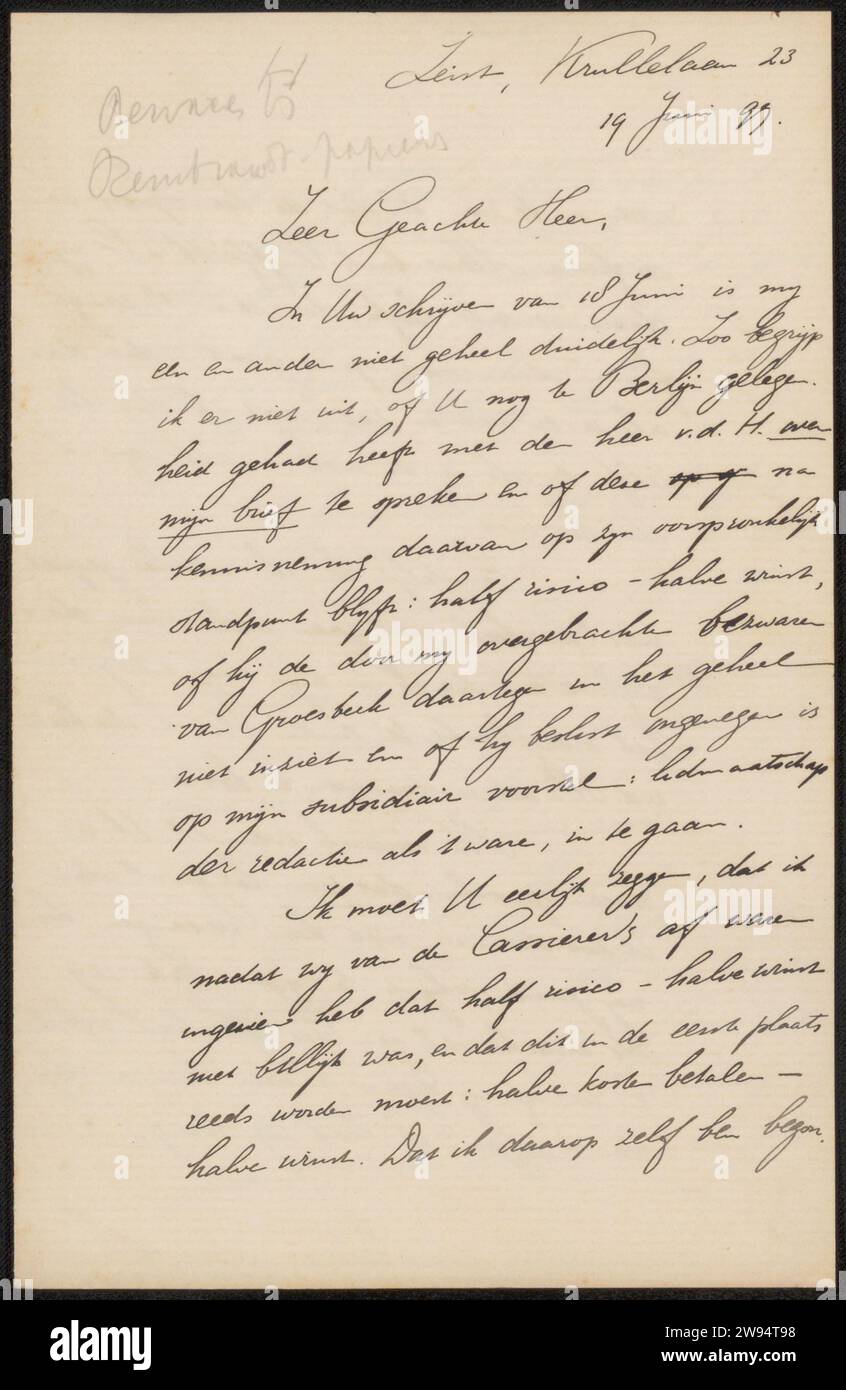 Bewaren
Rembrandt-papieren
Zeist, Krullelaan 23
19 Juni 99.
Zeer Geachte Heer,
In Uw schrijven van 18 Juni is mij
een en ander niet geheel duidelijk. Zoo begrijp
ik er niet uit, of U nog te Berlijn gelegen-
heid gehad heeft met den heer v.d. H. over
mijn brief te spreken en of deze na
kennisneming daarvan op zijn oorspronkelijk
standpunt blijft: half risico – halve winst,
of hij de door mij overgebrachte bezwaren
van Groesbeek daartegen in het geheel
niet inziet en of hij beslist ongenegen is
op mijn subsidiair voorstel: lidmaatschap
der redactie als 't ware, in te gaan.
Ik moet U eerlijk zeggen, dat ik
nadat wij van de Cassierer's af waren
ingezien heb dat half risico – halve winst
niet billijk was, en dat dit in de eerste plaats
reeds worden moest: halve koste betalen –
halve winst. Dat ik daarop zelf ben begon-
alamy
Image ID: 2W94T98
www.alamy.com